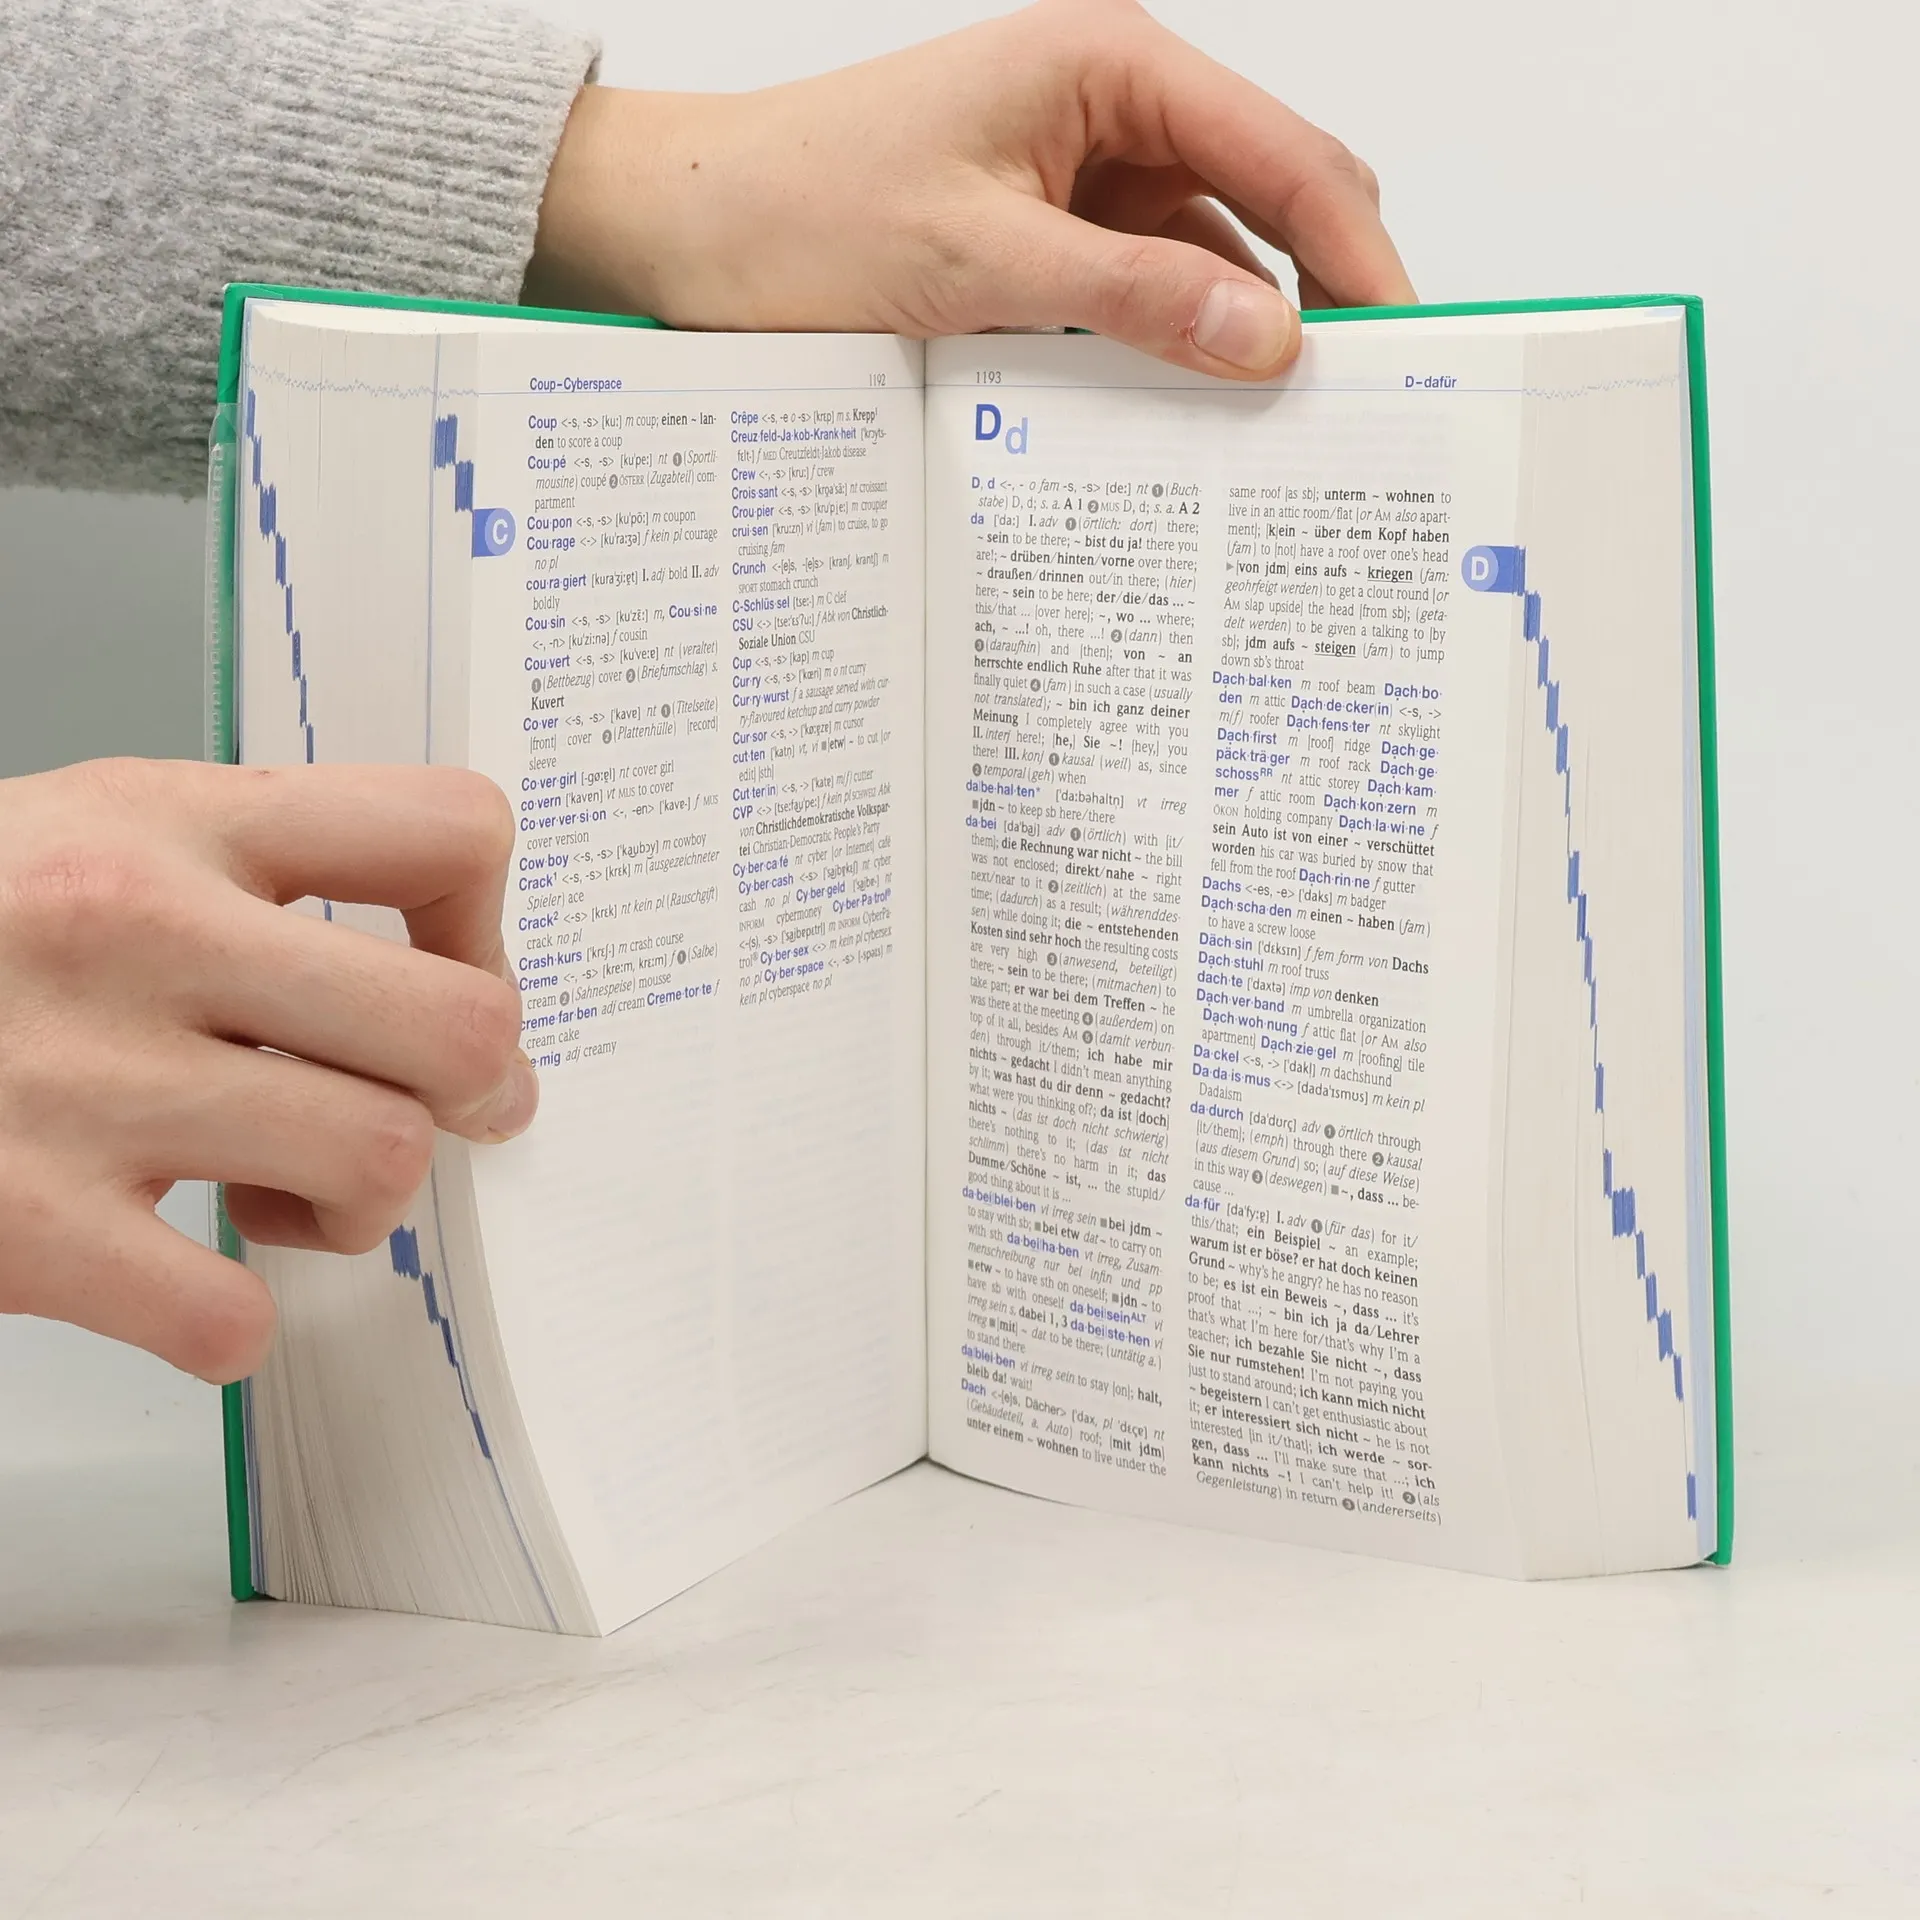 Coup–Cyberspace
1192
Coup <-s, -s> [ku:] m coup; einen ~ lan-
den to score a coup
Cou·pé <-s, -s> [ku'pe:] nt ❶ (Sportli-
mousine) coupé ❷ ÖSTERR (Zugabteil) com-
partment
Cou·pon <-s, -s> [ku'põ:] m coupon
Cou·rage <-> [ku'ra:ʒə] f kein pl courage
no pl
cou·ra·giert [kura'ʒi:ɐt] I. adj bold II. adv
boldly
Cou·sin <-s, -s> [ku'zɛ̃:] m, Cou·si·ne
<-, -n> [ku'zi:nə] f cousin
Cou·vert <-s, -s> [ku've:ɐ] nt (veraltet)
❶ (Bettbezug) cover ❷ (Briefumschlag) s.
Kuvert
Co·ver <-s, -s> ['kavɐ] nt ❶ (Titelseite)
[front] cover ❷ (Plattenhülle) [record]
sleeve
Co·ver·girl [-gø:ɐ̯l] nt cover girl
co·vern ['kavɐn] vt MUS to cover
Co·ver·ver·si·on <-, -en> ['kavɐ-] f MUS
cover version
Cow·boy <-s, -s> ['kaubɔy] m cowboy
Crack¹ <-s, -s> [krɛk] m (ausgezeichneter
Spieler) ace
Crack² <-s> [krɛk] nt kein pl (Rauschgift)
crack no pl
Crash·kurs ['krɛʃ-] m crash course
Creme <-, -s> [kre:m, krɛ:m] f ❶ (Salbe)
cream ❷ (Sahnespeise) mousse
creme·far·ben adj cream Creme·tor·te f
cream cake
e·mig adj creamy
Crêpe <-s, -e o -s> [krɛp] m s. Krepp¹
Creuz·feld-Ja·kob-Krank·heit ['krɔyts-
fɛlt-] f MED Creutzfeldt-Jakob disease
Crew <-, -s> [kru:] f crew
Crois·sant <-s, -s> [krɔa'sã:] nt croissant
Crou·pier <-s, -s> [kru'pi̯e:] m croupier
crui·sen ['kru:zn] vi (fam) to cruise, to go
cruising fam
Crunch <-[e]s, -[e]s> [kranʃ, krantʃ] m
SPORT stomach crunch
C-Schlüs·sel [tse:-] m C clef
CSU <-> [tse:ʔɛs'ʔu:] f Abk von Christlich-
Soziale Union CSU
Cup <-s, -s> [kap] m cup
Cur·ry <-s, -s> ['kœri] m o nt curry
Cur·ry·wurst f a sausage served with cur-
ry-flavoured ketchup and curry powder
Cur·sor <-s, -s> ['kø:ɐ̯zɐ] m cursor
cut·ten ['katn] vt, vi ■[etw] ~ to cut [or
edit] [sth]
Cut·ter(in) <-s, -> ['katɐ] m(f) cutter
CVP <-> [tse:fau'pe:] f kein pl SCHWEIZ Abk
von Christlichdemokratische Volkspar-
tei Christian-Democratic People's Party
Cy·ber·ca·fé nt cyber [or Internet] café
Cy·ber·cash <-> ['saibɐkɛʃ] nt cyber
cash no pl Cy·ber·geld ['saibɐ-] nt
INFORM cybermoney Cy·ber·Pa·trol®
<-(s), -s> ['saibɐpɛtrl] m INFORM CyberPa-
trol® Cy·ber·sex <-> m kein pl cybersex
no pl Cy·ber·space <-, -s> [-speɪs] m
kein pl cyberspace no pl
C
1193
D–dafür
Dd
D, d <-, - o fam -s, -s> [de:] nt ❶ (Buch-
stabe) D, d; s. a. A 1 ❷ MUS D, d; s. a. A 2
da ['da:] I. adv ❶ (örtlich: dort) there;
~ sein to be there; ~ bist du ja! there you
are!; ~ drüben/hinten/vorne over there;
~ draußen/drinnen out/in there; (hier)
here; ~ sein to be here; der/die/das ... ~
this/that ... [over here]; ~, wo ... where;
ach, ~ ...! oh, there ...! ❷ (dann) then
❸ (daraufhin) and [then]; von ~ an
herrschte endlich Ruhe after that it was
finally quiet ❹ (fam) in such a case (usually
not translated); ~ bin ich ganz deiner
Meinung I completely agree with you
II. interj here!; [he,] Sie ~! [hey,] you
there! III. konj ❶ kausal (weil) as, since
❷ temporal (geh) when
da|be·hal·ten* ['da:bəhaltn̩] vt irreg
■jdn ~ to keep sb here/there
da·bei [da'bai] adv ❶ (örtlich) with [it/
them]; die Rechnung war nicht ~ the bill
was not enclosed; direkt/nahe ~ right
next/near to it ❷ (zeitlich) at the same
time; (dadurch) as a result; (währenddes-
sen) while doing it; die ~ entstehenden
Kosten sind sehr hoch the resulting costs
are very high ❸ (anwesend, beteiligt)
there; ~ sein to be there; (mitmachen) to
take part; er war bei dem Treffen ~ he
was there at the meeting ❹ (außerdem) on
top of it all, besides AM ❺ (damit verbun-
den) through it/them; ich habe mir
nichts ~ gedacht I didn't mean anything
by it; was hast du dir denn ~ gedacht?
what were you thinking of?; da ist [doch]
nichts ~ (das ist doch nicht schwierig)
there's nothing to it; (das ist nicht
schlimm) there's no harm in it; das
Dumme/Schöne ~ ist, ... the stupid/
good thing about it is ...
da·bei|blei·ben vi irreg sein ■bei jdm ~
to stay with sb; ■bei etw dat ~ to carry on
with sth da·bei|ha·ben vt irreg, Zusam-
menschreibung nur bei infin und pp
■etw ~ to have sth on oneself; ■jdn ~ to
have sb with oneself da·bei|seinᴬᴸᵀ vi
irreg sein s. dabei 1, 3 da·bei|ste·hen vi
irreg ■[mit] ~ dat to be there; (untätig a.)
to stand there
da|blei·ben vi irreg sein to stay [on]; halt,
bleib da! wait!
Dach <-[e]s, Dächer> ['dax, pl 'dɛçɐ] nt
(Gebäudeteil, a. Auto) roof; [mit jdm]
unter einem ~ wohnen to live under the
same roof [as sb]; unterm ~ wohnen to
live in an attic room/flat [or AM also apart-
ment]; [k]ein ~ über dem Kopf haben
(fam) to [not] have a roof over one's head
▶[von jdm] eins aufs ~ kriegen (fam:
geohrfeigt werden) to get a clout round [or
AM slap upside] the head [from sb]; (geta-
delt werden) to be given a talking to [by
sb]; jdm aufs ~ steigen (fam) to jump
down sb's throat
Dach·bal·ken m roof beam Dach·bo-
den m attic Dach·de·cker(in) <-s, ->
m(f) roofer Dach·fens·ter nt skylight
Dach·first m [roof] ridge Dach·ge-
päck·trä·ger m roof rack Dach·ge-
schossᴿᴿ nt attic storey Dach·kam-
mer f attic room Dach·kon·zern m
ÖKON holding company Dach·la·wi·ne f
sein Auto ist von einer ~ verschüttet
worden his car was buried by snow that
fell from the roof Dach·rin·ne f gutter
Dachs <-es, -e> ['daks] m badger
Dach·scha·den m einen ~ haben (fam)
to have a screw loose
Däch·sin ['dɛksɪn] f fem form von Dachs
Dach·stuhl m roof truss
dach·te ['daxtə] imp von denken
Dach·ver·band m umbrella organization
Dach·woh·nung f attic flat [or AM also
apartment] Dach·zie·gel m [roofing] tile
Da·ckel <-s, -> ['dakl̩] m dachshund
Da·da·is·mus <-> [dada'ɪsmʊs] m kein pl
Dadaism
da·durch [da'dʊrç] adv ❶ örtlich through
[it/them]; (emph) through there ❷ kausal
(aus diesem Grund) so; (auf diese Weise)
in this way ❸ (deswegen) ■~, dass ... be-
cause ...
da·für [da'fy:ɐ̯] I. adv ❶ (für das) for it/
this/that; ein Beispiel ~ an example;
warum ist er böse? er hat doch keinen
Grund ~ why's he angry? he has no reason
to be; es ist ein Beweis ~, dass ... it's
proof that ...; ~ bin ich ja da/Lehrer
that's what I'm here for/that's why I'm a
teacher; ich bezahle Sie nicht ~, dass
Sie nur rumstehen! I'm not paying you
just to stand around; ich kann mich nicht
~ begeistern I can't get enthusiastic about
it; er interessiert sich nicht ~ he is not
interested [in it/that]; ich werde ~ sor-
gen, dass ... I'll make sure that ...; ich
kann nichts ~! I can't help it! ❷ (als
Gegenleistung) in return ❸ (andererseits)
D